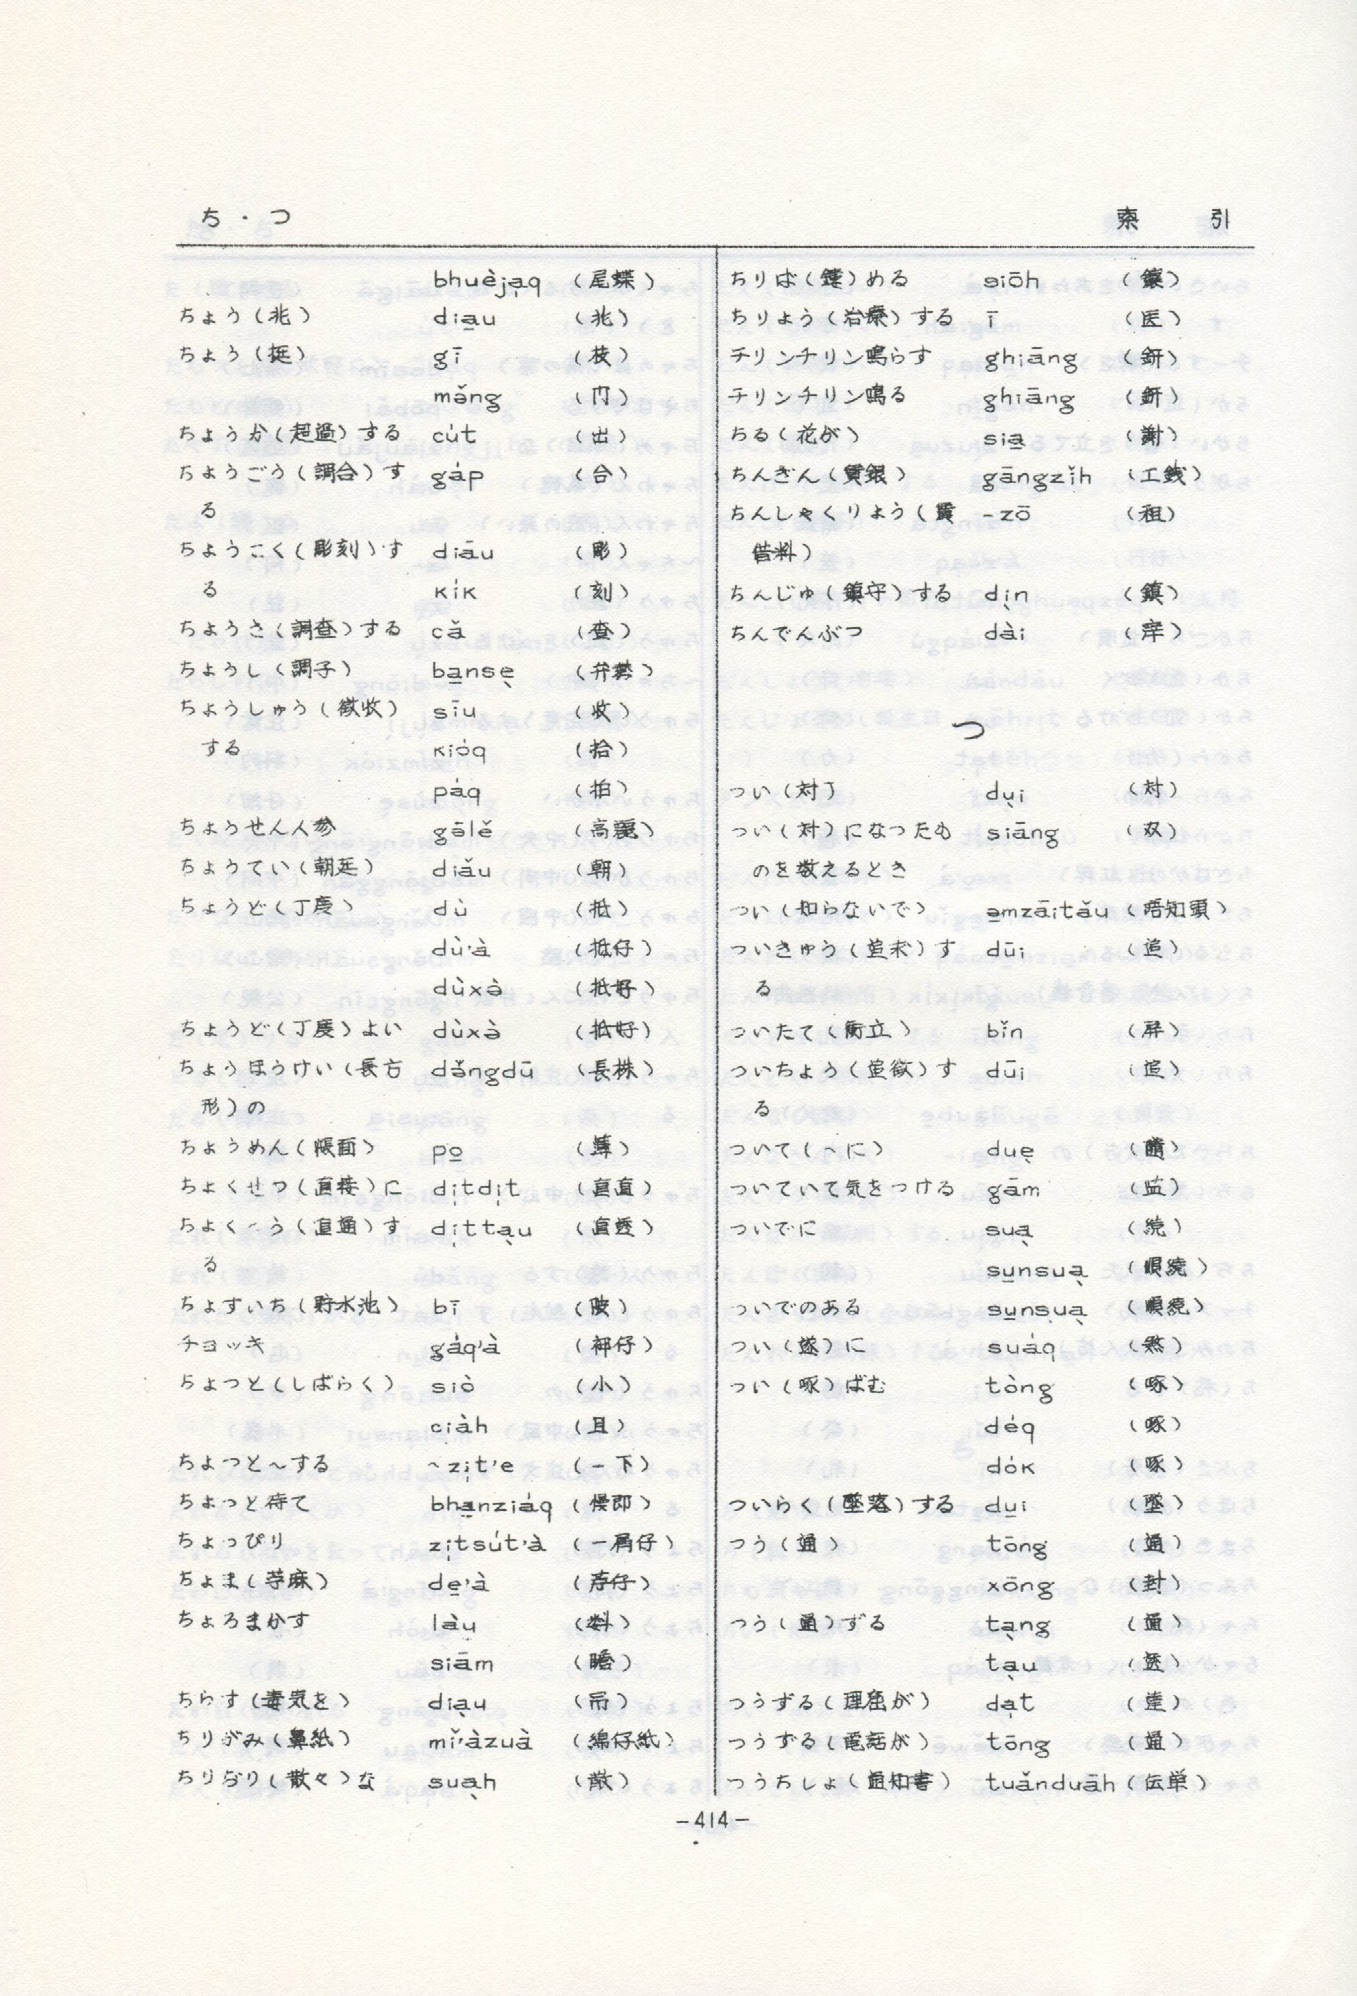 ち・つ 索引
bhuèjạq (尾蝶)
ちょう(兆) dia̱u (兆)
ちょう(挺) gī (枝)
mǎng (门)
ちょうか(超過)する cu̇t (出)
ちょうごう(調合)す gȧp (合)
る
ちょうこく(彫刻)す diāu (彫)
る ki̇k (刻)
ちょうさ(調査)する cǎ (査)
ちょうし(調子) ba̱nsẹ (弁勢)
ちょうしゅう(徴收) sīu (收)
する kiȯq (拾)
pȧq (拍)
ちょうせん人参 gōlě (高麗)
ちょうてい(朝廷) diǎu (朝)
ちょうど(丁度) dù (抵)
dù'à (抵仔)
dùxà (抵好)
ちょうど(丁度)よい dùxà (抵好)
ちょうほうけい(長方 dǎngdū (長株)
形)の
ちょうめん(帳面) po̱
ちょくせつ(直接)に dịtdịt (直直)
ちょくつう(直通)す dịttạu (直透)
る
ちょすいち(貯水池) bī (陂)
チョッキ gȧq'à (裀仔)
ちょっと(しばらく) siò (小)
ciàh (且)
ちょっと~する ~zịt'e (一下)
ちょっと待て bha̱nziȧq (慢即)
ちょっぴり zịtsu̇t'à (一屑仔)
ちょま(苧麻) de̱'à (苧仔)
ちょろまかす làu
siām (瞻)
ちらす(毒気を) diạu (吊)
ちりがみ(鼻紙) mǐ'àzuà (綿仔紙)
ちりぢり(散々)な suạh (散)
ちりば(鏤)める siōh (鑲)
ちりょう(治療)する ī (医)
チリンチリン鳴らす ghiāng (鈃)
チリンチリン鳴る ghiāng (鈃)
ちる(花が) sia̱ (謝)
ちんぎん(賃銀) gāngzǐh (工銭)
ちんしゃくりょう(賃 -zō (租)
借料)
ちんじゅ(鎮守)する dịn (鎮)
ちんでんぶつ dài (滓)
つ
つい(対) dụi (対)
つい(対)になったも siāng (双)
のを数えるとき
つい(知らないで) a̱mzāitǎu (唔知頭)
ついきゅう(追求)す dūi (追)
る
ついたて(衝立) bǐn (屏)
ついちょう(追徴)す dūi (追)
る
ついて(~に) duẹ
ついていて気をつける gām (監)
ついでに suạ (続)
su̱nsuạ (順続)
ついでのある su̱nsuạ (順続)
つい(遂)に suȧq (煞)
つい(啄)ばむ tòng (啄)
dėq (啄)
dȯk (啄)
ついらく(墜落)する du̱i (墜)
つう(通) tōng (通)
xōng (封)
つう(通)ずる tạng (通)
tạu (透)
つうずる(理屈が) dạt (達)
つうずる(電話が) tōng (通)
つうちしょ(通知書) tuǎnduāh (伝単)
—414—